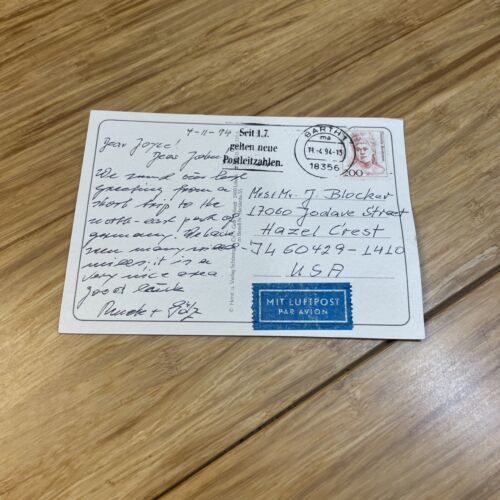 4-11-94
Dear Joyce!
Dear John!
We send our best
greeting from a
short trip to the
north-east part of
Germany. We have
seen many
miles, it is a
very nice area
good
+ Götz
Seit 1.7.
gelten neue
Postleitzahlen.
BARTH 1
ma
11.-4.94-15
18356
200
Mrs & Mr. J. Blocker
17060 Jodave Street
Hazel Crest
JL 60429-1410
USA
MIT LUFTPOST
PAR AVION